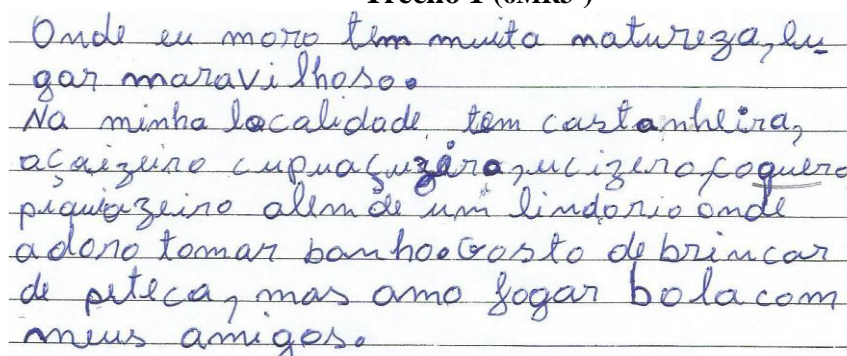 Trecho 1 (6MR5 )
Onde eu moro tem muita natureza, lu-
gar maravilhoso.
Na minha localidade tem castanheira,
açaizeiro cupuaçuzeiro, ucizero, coquero
piquiazeiro alem de um lindo rio onde
adoro tomar banho. Gosto de brincar
de peteca, mas amo jogar bola com
meus amigos.